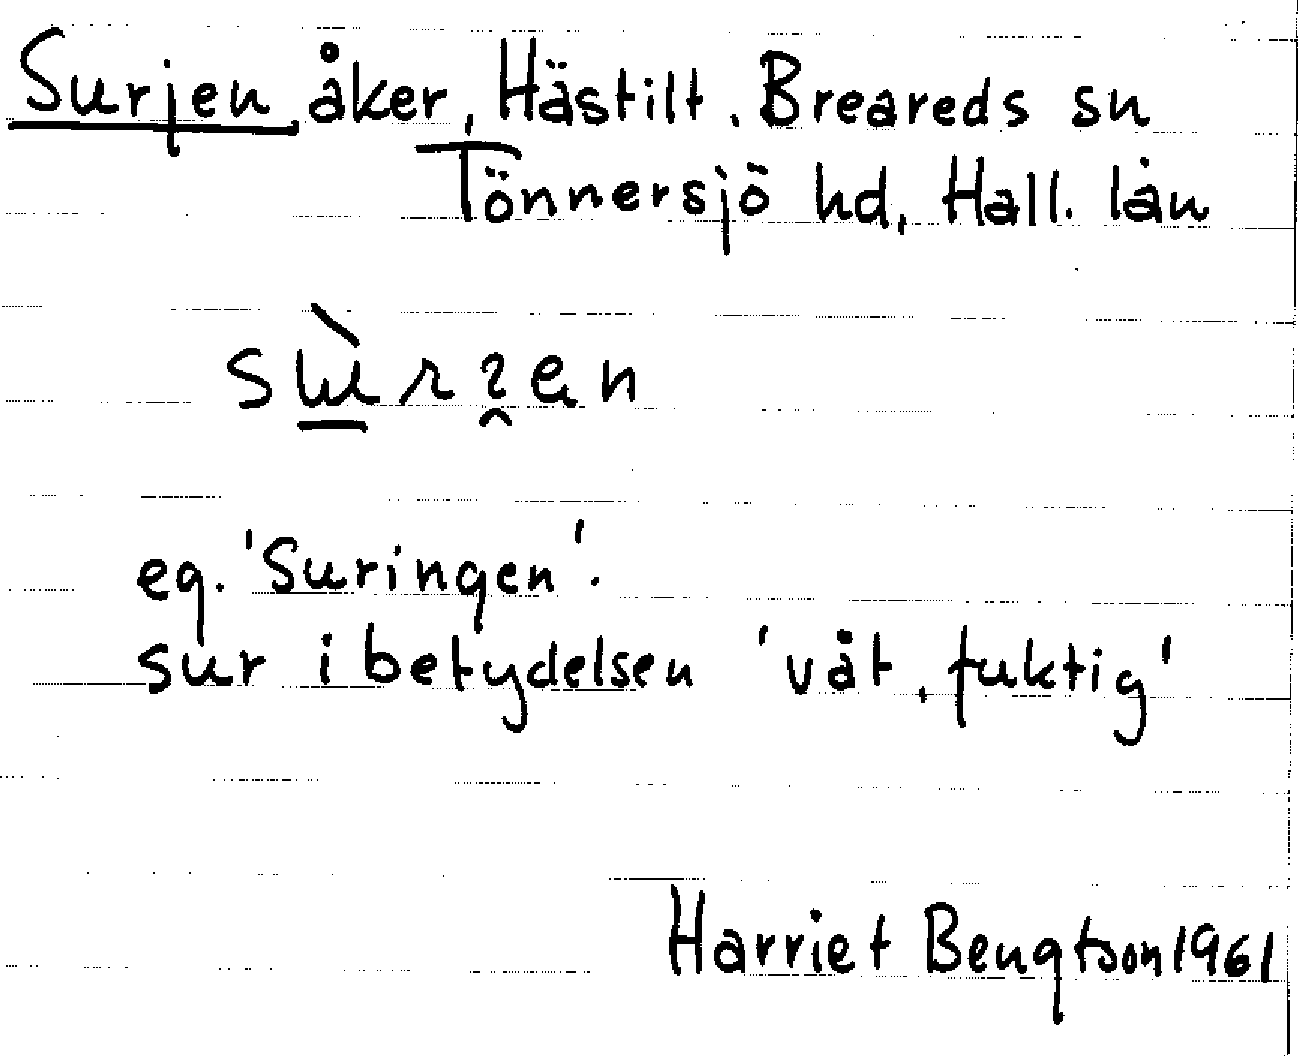 Surjen åker, Hästilt, Breareds sn
Tönnersjö hd, Hall. län
eg. 'Suringen'.
sur i betydelsen 'våt, fuktig'
Harriet Bengtson 1961